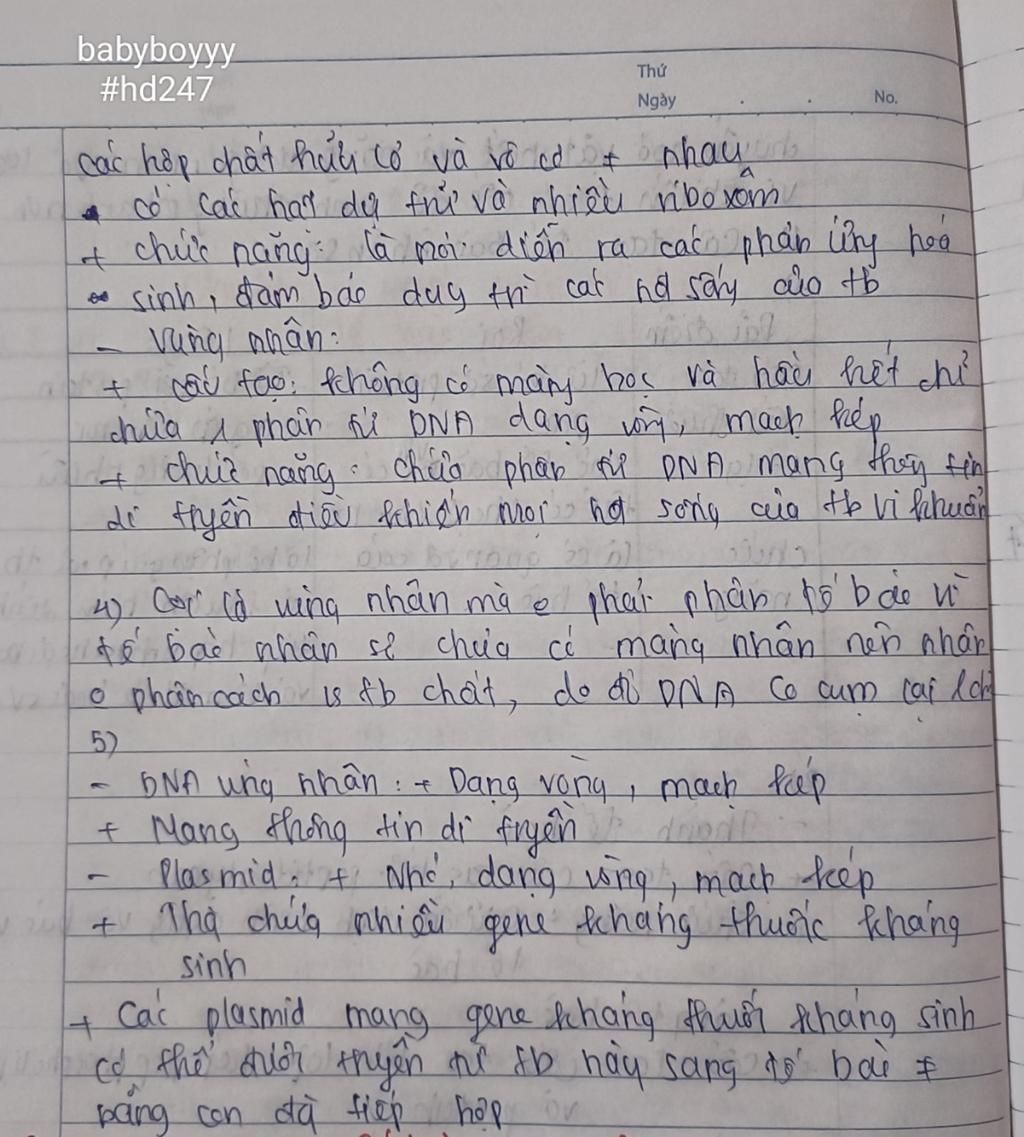 babyboyyy
#hd247
Thứ
Ngày . . No.
các hợp chất hữu cơ và vô cơ ≠ nhau
có các hạt dự trữ và nhiều riboxôm
+ chức năng: là nơi diễn ra các phản ứng hoá
sinh, đảm bảo duy trì các hđ sống của tb
- Vùng nhân:
+ cấu tạo: không có màng bọc và hầu hết chỉ
chứa 1 phân tử DNA dạng vòng, mạch kép
+ chức năng: chứa phân tử DNA mang thông tin
di truyền điều khiển mọi hđ sống của tb vi khuẩn
4) Gọi là vùng nhân mà o phải phân tế bào vì
tế bào nhân sơ chưa có màng nhân nên nhân
o phân cách vs tb chất, do đó DNA co cụm lại
5)
- DNA vùng nhân: + Dạng vòng, mạch kép
+ Mang thông tin di truyền
- Plasmid: + Nhỏ, dạng vòng, mạch kép
+ chứa nhiều gene kháng thuốc kháng
sinh
+ Các plasmid mang gene kháng thuốc kháng sinh
có thể được truyền từ tb này sang tế bào ≠
bằng con đg tiếp hợp